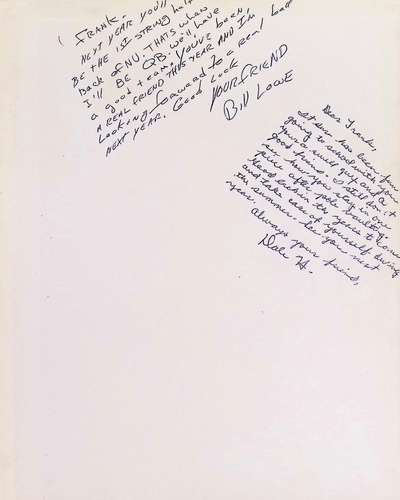 Frank.
NEXT YEAR YOU'll
BE THE 1ST STRING half
back of NU. THATS when
I'll BE QB. We'll have
a good team. YOUVE been,
A REAL FRIEND THIS YEAR AND I'm
Looking foaward to a real ball
NEXT YEAR. Good Luck
YOUR FRIEND
Bill Lowe
Dear Frank,
It sure has been fun
going to school with you
your a swell guy and a
good friend. I still don't
see how you stay in one
piece after pole vaulting.
Good luck in the years to come
and take care of yourself during
the summer. See you next
year.
Always your friend,
Dale H.